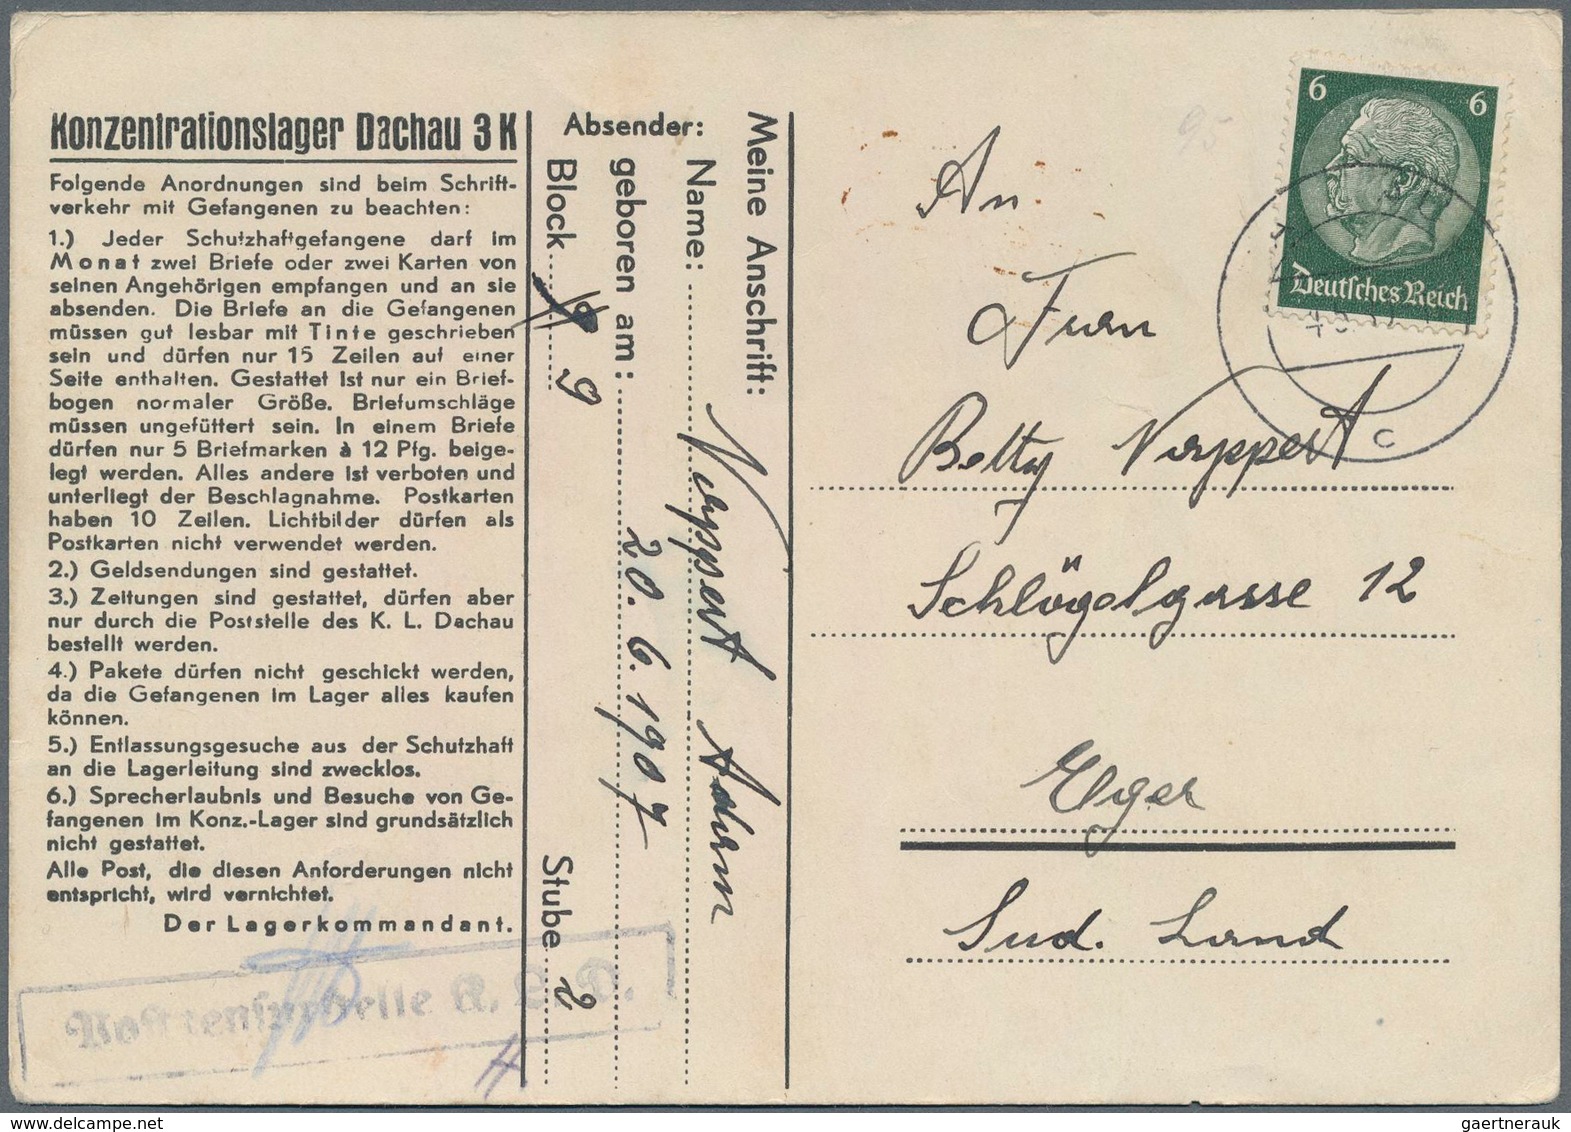 Konzentrationslager Dachau 3 K
Folgende Anordnungen sind beim Schrift-
verkehr mit Gefangenen zu beachten:
1.) Jeder Schutzhaftgefangene darf im
Monat zwei Briefe oder zwei Karten von
seinen Angehörigen empfangen und an sie
absenden. Die Briefe an die Gefangenen
müssen gut lesbar mit Tinte geschrieben
sein und dürfen nur 15 Zeilen auf einer
Seite enthalten. Gestattet ist nur ein Brief-
bogen normaler Größe. Briefumschläge
müssen ungefüttert sein. In einem Briefe
dürfen nur 5 Briefmarken à 12 Pfg. beige-
legt werden. Alles andere ist verboten und
unterliegt der Beschlagnahme. Postkarten
haben 10 Zeilen. Lichtbilder dürfen als
Postkarten nicht verwendet werden.
2.) Geldsendungen sind gestattet.
3.) Zeitungen sind gestattet, dürfen aber
nur durch die Poststelle des K. L. Dachau
bestellt werden.
4.) Pakete dürfen nicht geschickt werden,
da die Gefangenen im Lager alles kaufen
können.
5.) Entlassungsgesuche aus der Schutzhaft
an die Lagerleitung sind zwecklos.
6.) Sprecherlaubnis und Besuche von Ge-
fangenen im Konz.-Lager sind grundsätzlich
nicht gestattet.
Alle Post, die diesen Anforderungen nicht
entspricht, wird vernichtet.
Der Lagerkommandant.
Postzensurstelle K. L. D.
Absender:
Meine Anschrift:
Name: Neppert Adam
geboren am: 20. 6. 1907
Block 9 Stube 2
6 6
Deutsches Reich
c
95
An
Frau
Betty Neppert
Schlögelgasse 12
Eger
Sud. Land
gaertnerauk